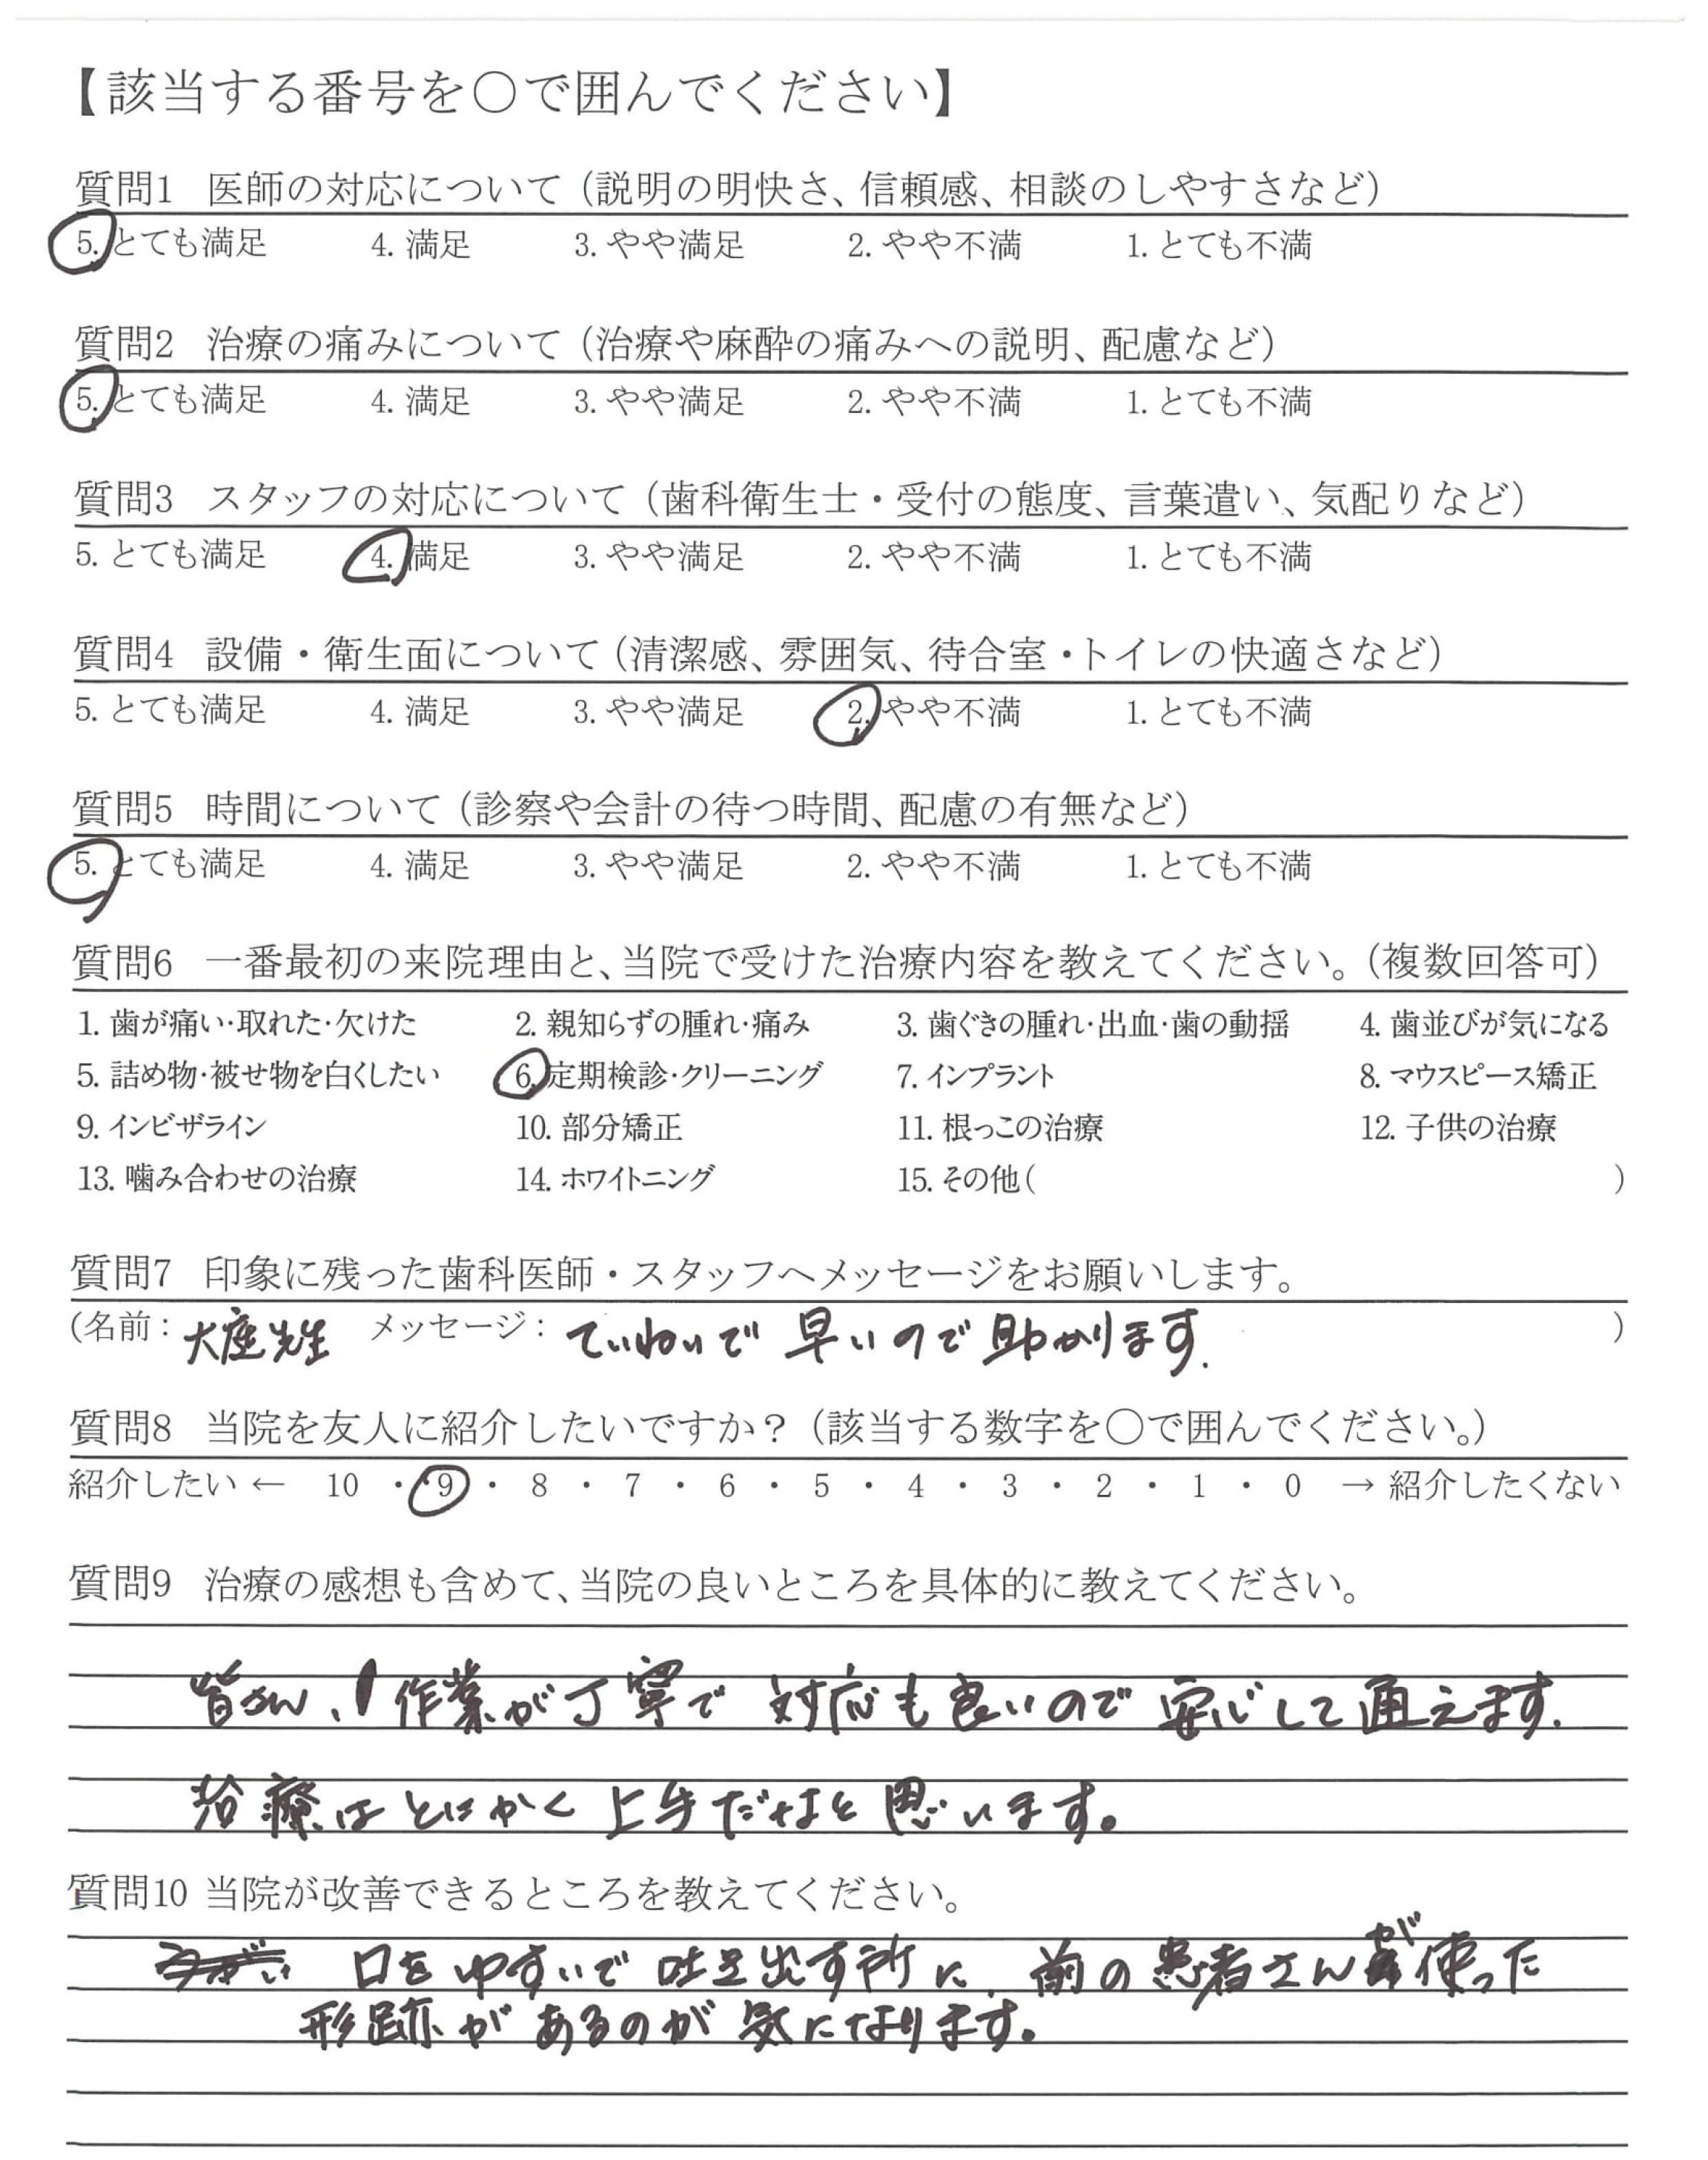 【該当する番号を○で囲んでください】
質問1 医師の対応について（説明の明快さ、信頼感、相談のしやすさなど）
5. とても満足 4. 満足 3. やや満足 2. やや不満 1. とても不満
質問2 治療の痛みについて（治療や麻酔の痛みへの説明、配慮など）
5. とても満足 4. 満足 3. やや満足 2. やや不満 1. とても不満
質問3 スタッフの対応について（歯科衛生士・受付の態度、言葉遣い、気配りなど）
5. とても満足 4. 満足 3. やや満足 2. やや不満 1. とても不満
質問4 設備・衛生面について（清潔感、雰囲気、待合室・トイレの快適さなど）
5. とても満足 4. 満足 3. やや満足 2. やや不満 1. とても不満
質問5 時間について（診察や会計の待つ時間、配慮の有無など）
5. とても満足 4. 満足 3. やや満足 2. やや不満 1. とても不満
質問6 一番最初の来院理由と、当院で受けた治療内容を教えてください。（複数回答可）
1. 歯が痛い・取れた・欠けた 2. 親知らずの腫れ・痛み 3. 歯ぐきの腫れ・出血・歯の動揺 4. 歯並びが気になる
5. 詰め物・被せ物を白くしたい 6. 定期検診・クリーニング 7. インプラント 8. マウスピース矯正
9. インビザライン 10. 部分矯正 11. 根っこの治療 12. 子供の治療
13. 噛み合わせの治療 14. ホワイトニング 15. その他（ ）
質問7 印象に残った歯科医師・スタッフへメッセージをお願いします。
（名前： 大座先生 メッセージ： ていねいで 早いので 助かります. ）
質問8 当院を友人に紹介したいですか？（該当する数字を○で囲んでください。）
紹介したい ← 10 ・ 9 ・ 8 ・ 7 ・ 6 ・ 5 ・ 4 ・ 3 ・ 2 ・ 1 ・ 0 → 紹介したくない
質問9 治療の感想も含めて、当院の良いところを具体的に教えてください。
皆さん、作業が丁寧で 対応も良いので 安心して 通えます.
治療は とにかく 上手だなと 思います。
質問10 当院が改善できるところを教えてください。
口をゆすいで 吐き出す所に、前の患者さんが使った
形跡が あるのが 気になります。